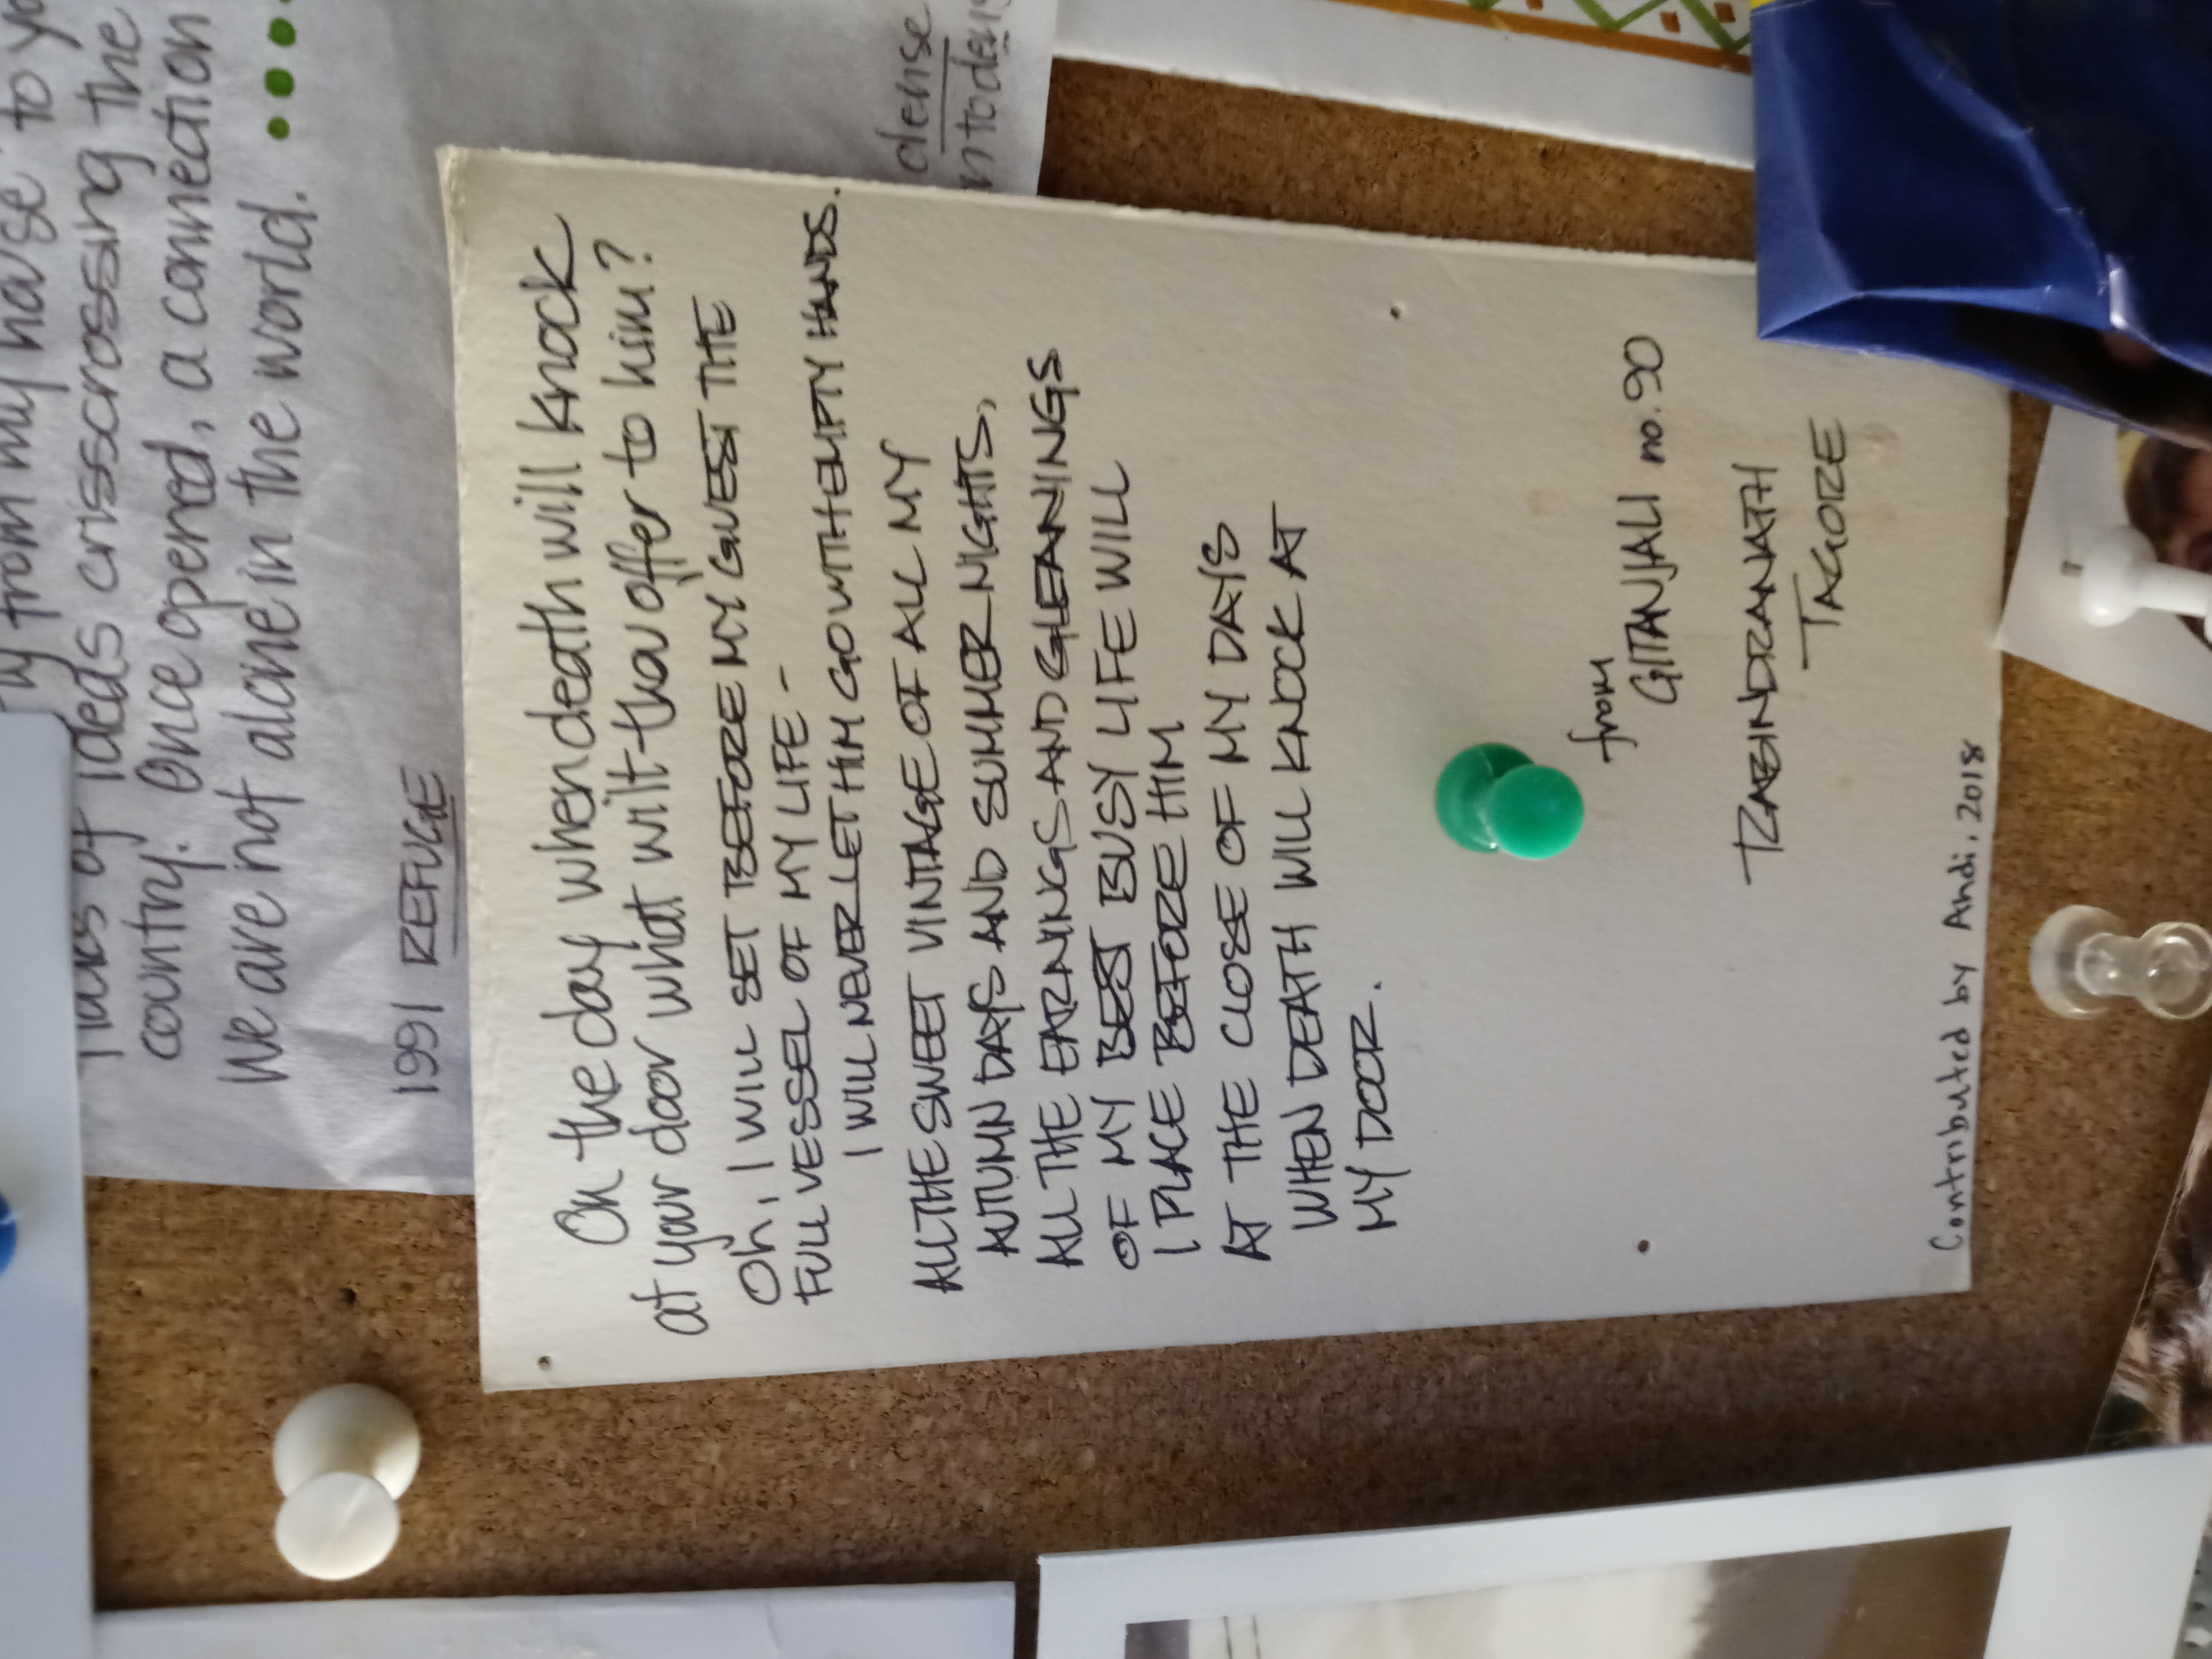 from my house to
of ideas crisscrossing the
country. Once opened, a connection
We are not alone in the world.
1991 REFUGE
On the day when death will knock
at your door what wilt thou offer to him?
Oh, I WILL SET BEFORE MY GUEST THE
FULL VESSEL OF MY LIFE -
I WILL NEVER LET HIM GO WITH EMPTY HANDS.
ALL THE SWEET VINTAGE OF ALL MY
AUTUMN DAYS AND SUMMER NIGHTS,
ALL THE EARNINGS AND GLEANINGS
OF MY BEST BUSY LIFE WILL
I PLACE BEFORE HIM
AT THE CLOSE OF MY DAYS
WHEN DEATH WILL KNOCK AT
MY DOOR.
from
GITANJALI no. 90
RABINDRANATH
TAGORE
Contributed by Andi, 2018
dense